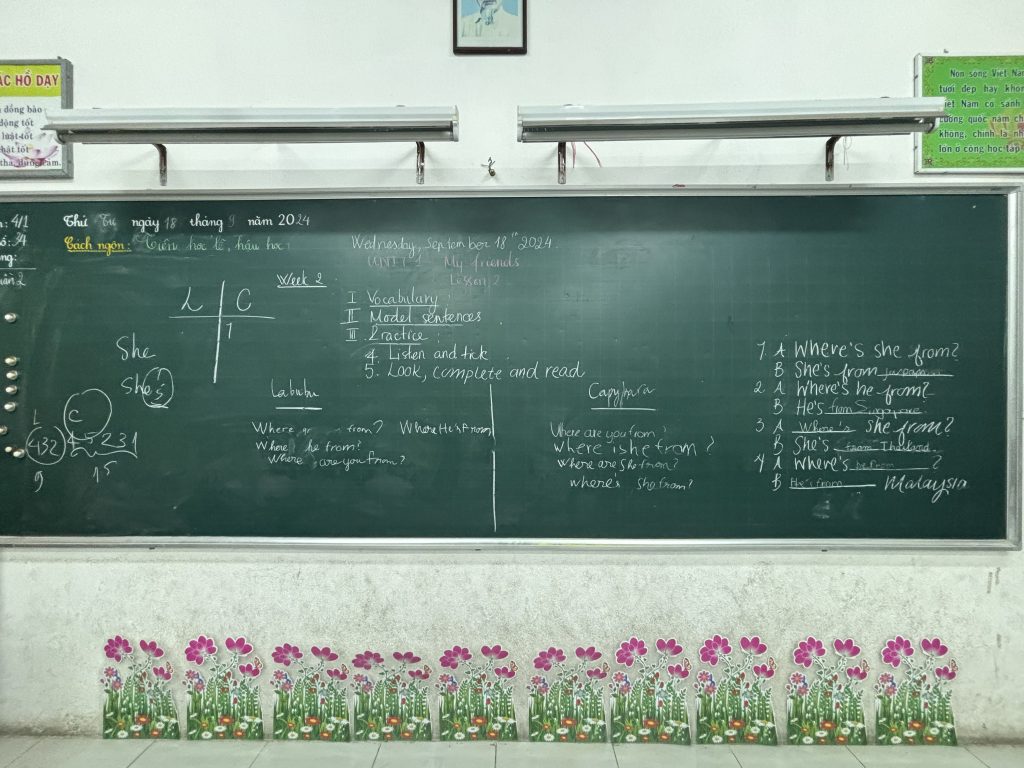 ÁC HỒ DẠY
đồng bào
động tốt
luật tốt
thật tốt
thà, dũng cảm.
Non sông Việt Nam
tươi đẹp hay không
Việt Nam có sánh
cường quốc năm ch
không, chính là nh
lớn ở công học tập
: 4/1
: 34
Thứ Tư ngày 18 tháng 9 năm 2024
Cách ngôn: Tiên học lễ, hậu học
Wednesby, September 18th 2024.
UNIT 1 My friends
Lesson 2
Week 2
L C
1
I Vocabulary:
II Model sentences
III Practice:
4. Listen and tick
5. Look, complete and read
She
She's
L C
432
45231
9 15
Labubu
Where from? Where He's from
Where he from?
Where are you from?
Capybara
Where are you from?
Where is he from?
Where are She from?
where's She from?
1 A Where's she from?
B She's from
2 A Where's he from?
B He's from Singapore
3 A Where's she from?
B She's from Thailand.
4 A Where's he from?
B He's from Malaysia